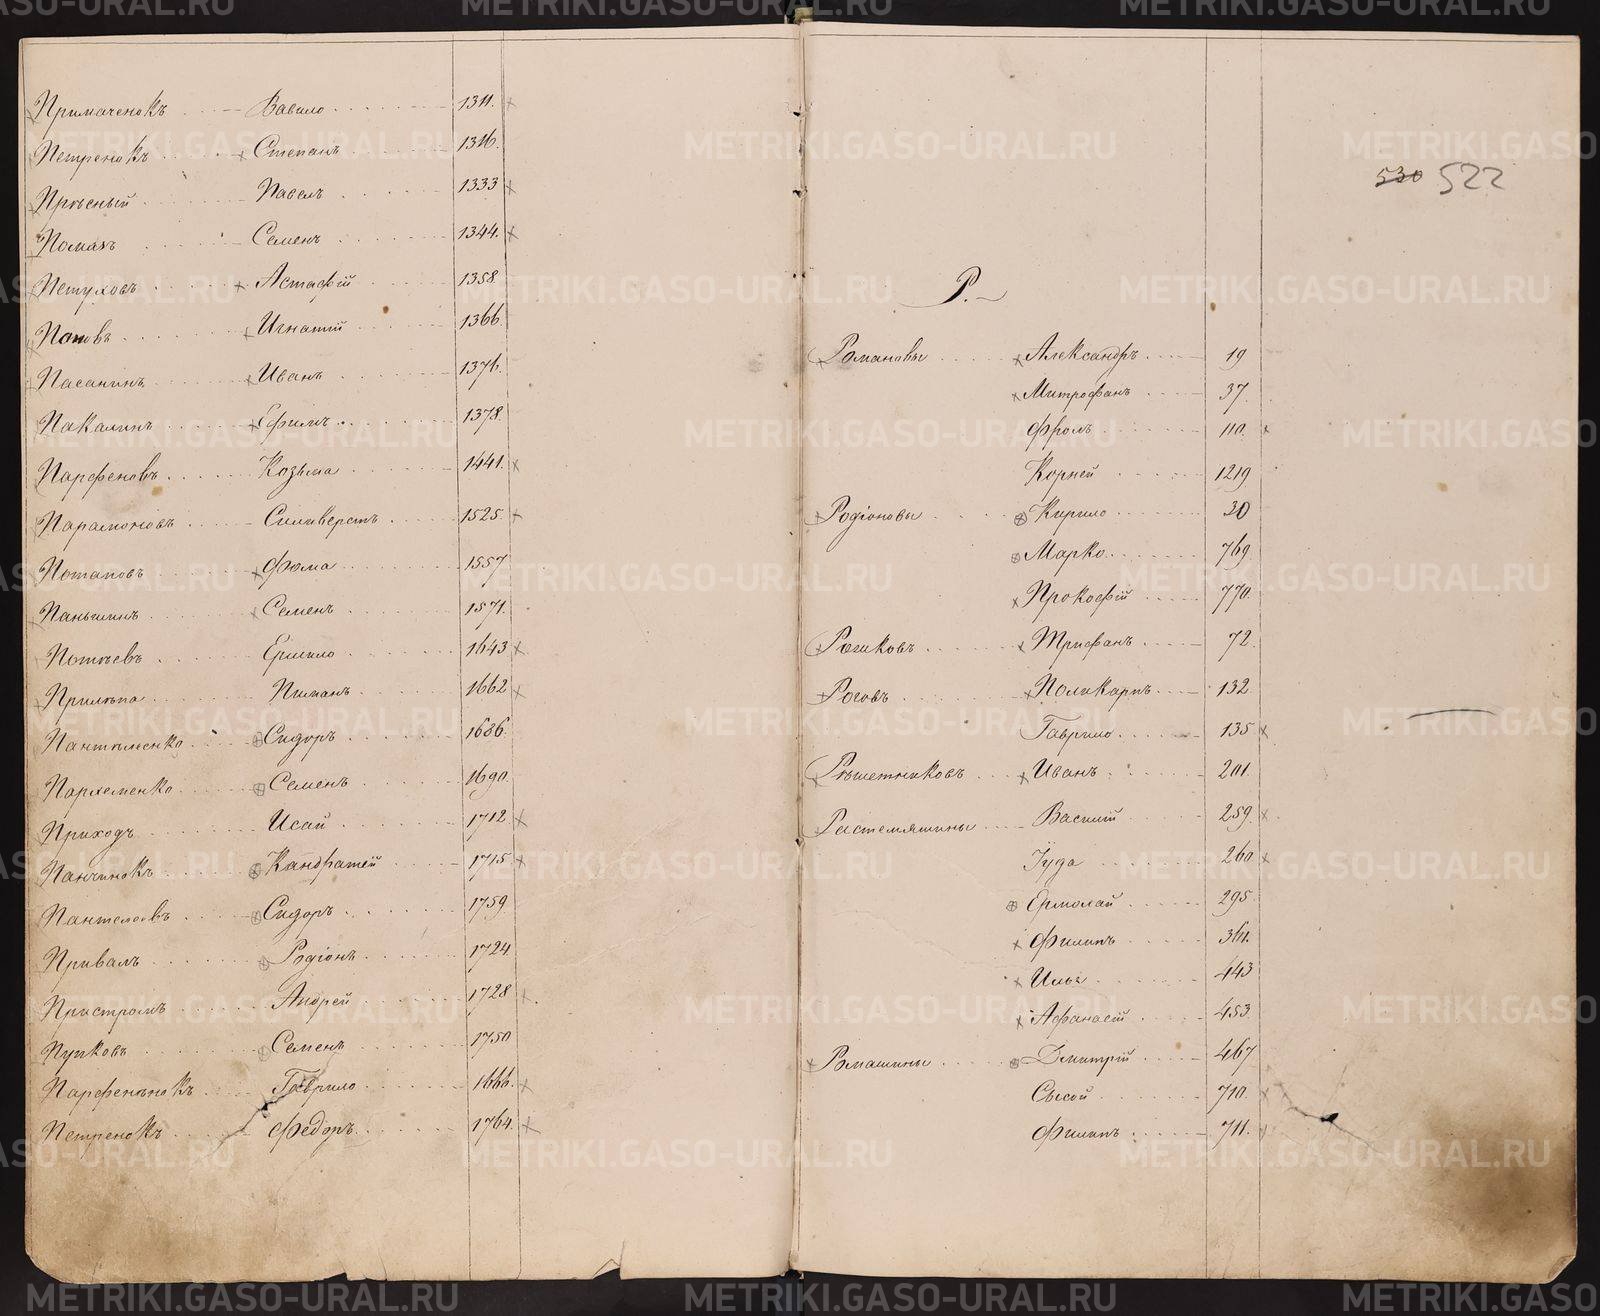 Примаченокъ Вавило 1311.
Петренокъ Степанъ 1316.
Прѣсный Павелъ 1333
Помазъ Семенъ 1344.
Петуховъ Астафій 1358
Поповъ Игнатій 1366.
Пасанинъ Иванъ 1376.
Пакалинъ Ефимъ 1378.
Парфеновъ Козьма 1441.
Парамоновъ Силиверстъ 1525.
Потаповъ Фома 1557
Паньшинъ Семенъ 1571.
Потѣевъ Ермило 1643
Прилѣпа Пиманъ 1662
Пантѣменко Сидоръ 1686.
Пархеменко Семенъ 1690.
Приходъ Исай 1712
Панчинокъ Кандратей 1715
Пантелеевъ Сидоръ 1759
Привалъ Родіонъ 1724
Пристромъ Андрей 1728
Пупковъ Семенъ 1750
Парфенѣнокъ Гаврило 1666.
Петренокъ Федоръ 1764.
530 522
Р.
Романовы Александръ 19
Митрофанъ 37.
Фролъ 110.
Корней 1219
Родіоновы Кирило 30
Марко 769
Прокофій 770.
Рогиковъ Трифанъ 72.
Роговъ Поликарпъ 132
Гаврило 135
Рѣшетниковъ Иванъ 201.
Растемяшины Василій 259
Іуда 260
Ермолай 295
Филипъ 361.
Илья 443
Афанасій 453
Ромашины Дмитрій 467
Сысой 710.
Филипъ 711.
METRIKI.GASO-URAL.RU